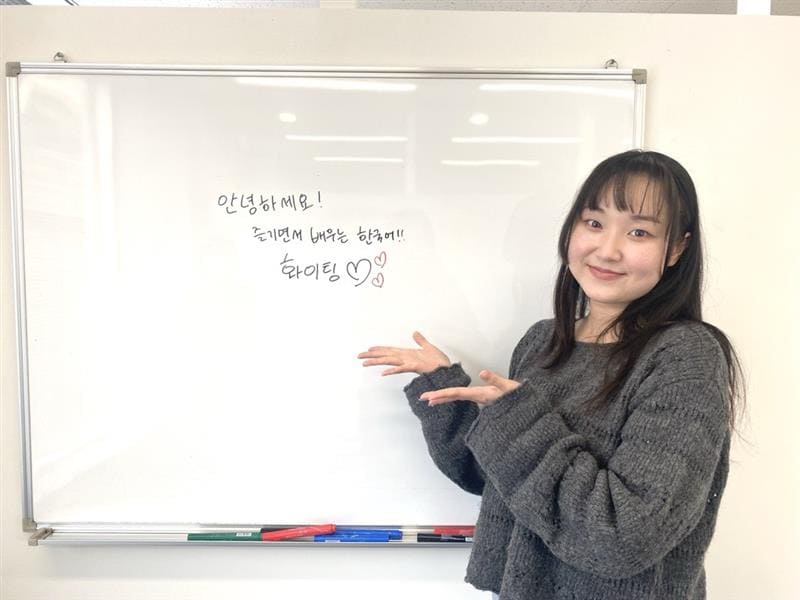 안녕하세요!
즐기면서 배우는 한국어!!
화이팅♡♡♡